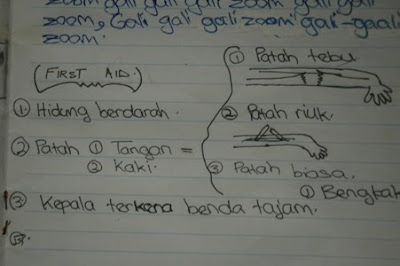 zoom gali gali gali zoom gali gali
zoom, Gali gali gali zoom gali-gaali
zoom.
(FIRST AID.)
① Hidung berdarah.
② Patah ① Tangan =
② Kaki.
① Patah tebu
② Patah riuk.
③ Patah biasa.
① Bengkak
③ Kepala terkena benda tajam.